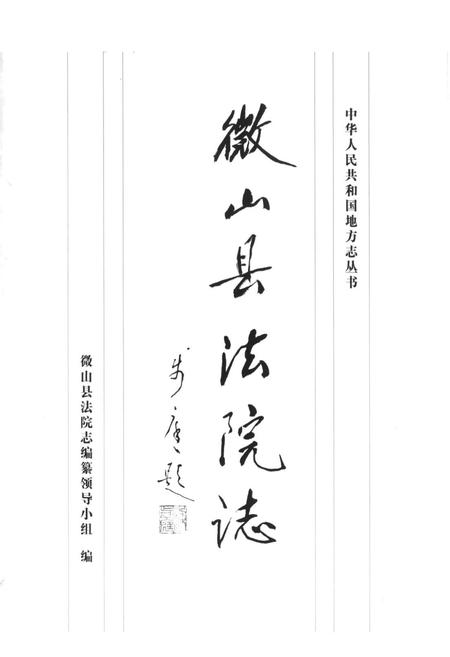 中华人民共和国地方志丛书
微山县法院誌
题
微山县法院志编纂领导小组 编